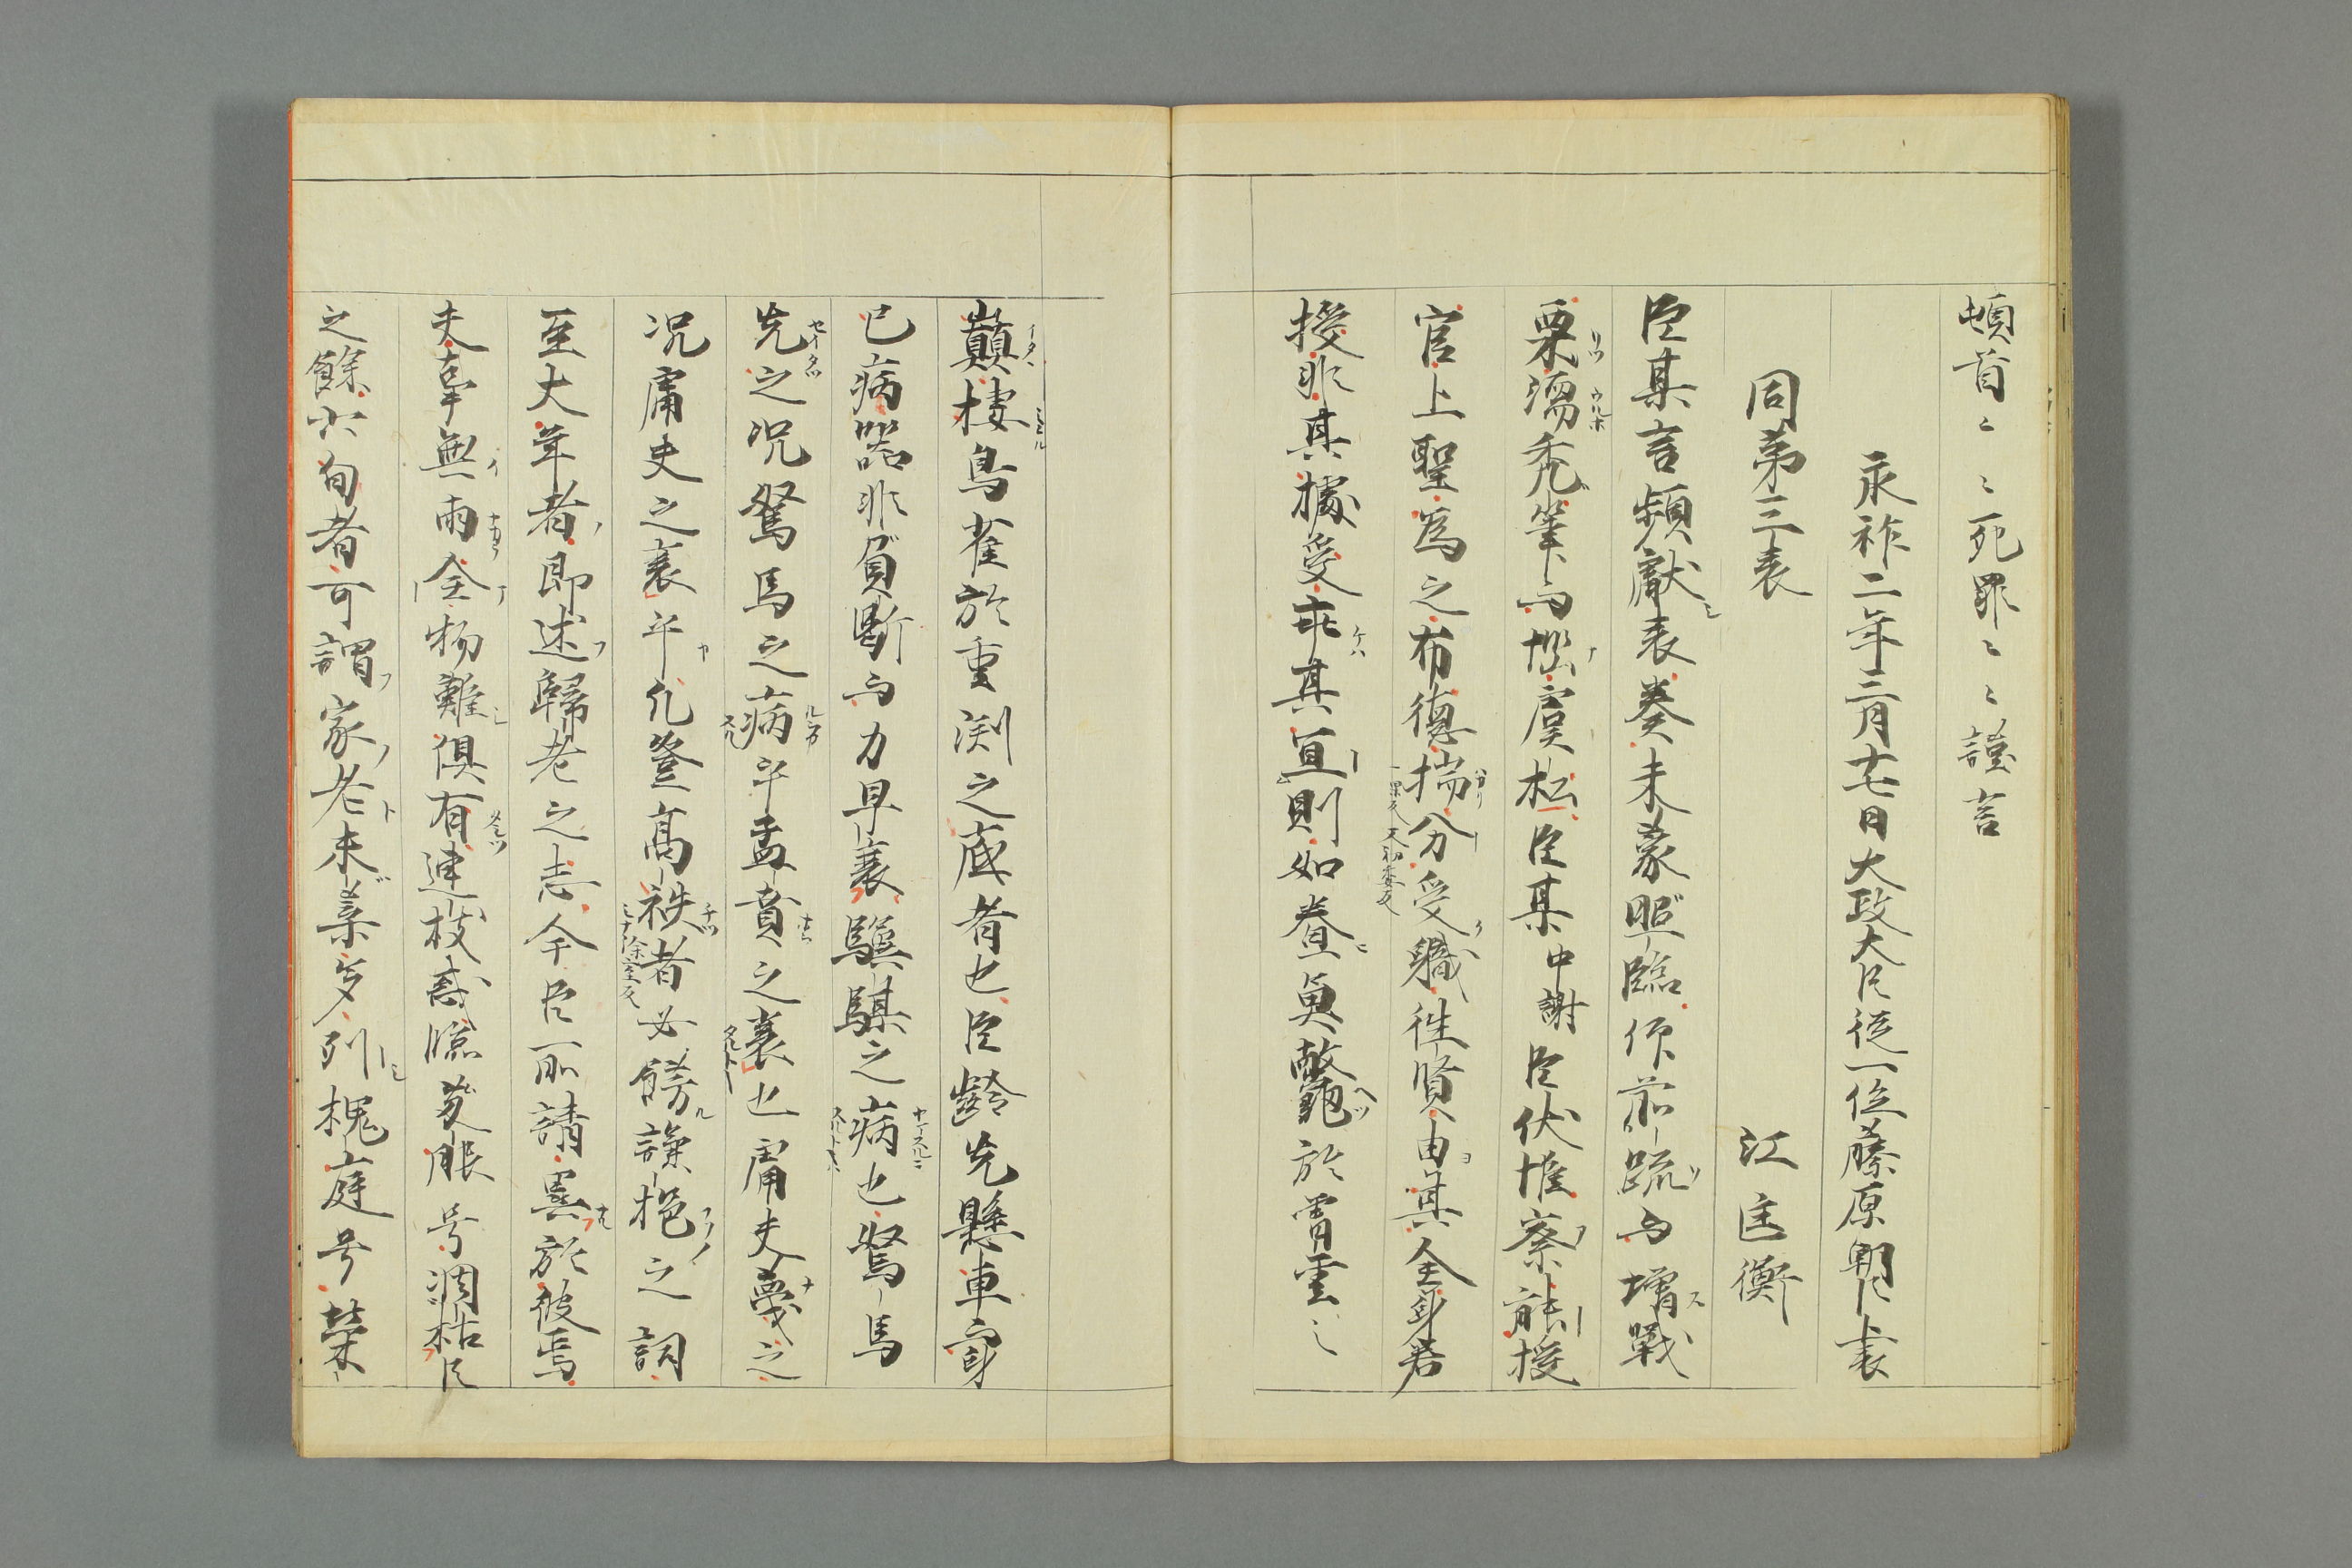 頓首〻〻死罪〻〻謹言
永祚二年三月十七日大政大臣従一位藤原朝臣上表
同第三表 江匡衡
臣某言頻獻表奏未蒙照臨仰前疏而増戰
栗濡禿筆而慙虞松臣某中謝臣伏惟察能授
官上聖為之布德揣分受職往賢由其全身若
授非其據受乖其宜則如登魚鼈於霄雲之
巔棲鳥雀於重渕之底者也臣齡先懸車身
已病器非負斷而力早衰驥騏之病也駑馬
先之况駑馬之病乎孟賁之衰也庸夫蔑之
况庸夫之衰乎凡登高秩者必餝謙挹之詞
至大年者即述歸老之志今臣所請異於彼焉
夫草無兩全物難俱有連枝感臨芝眼兮凋枯臣
之餘六旬者可謂家老未業兮列槐庭兮榮